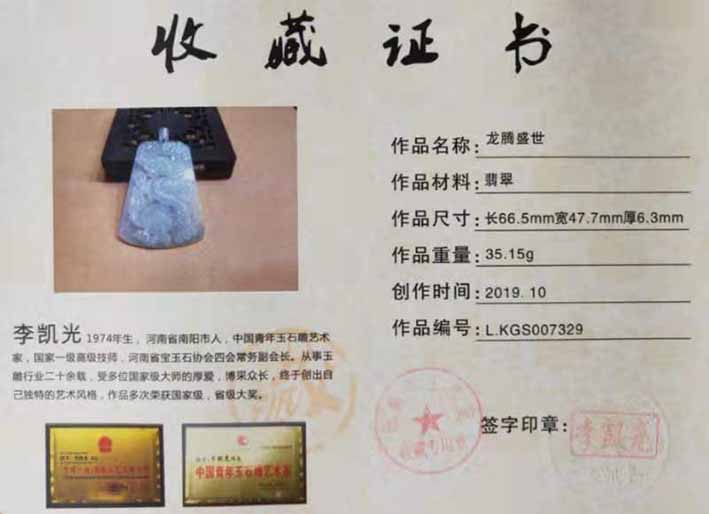 收藏证书
作品名称：龙腾盛世
作品材料：翡翠
作品尺寸：长66.5mm宽47.7mm厚6.3mm
作品重量：35.15g
创作时间：2019.10
作品编号：L.KGS007329
李凯光 1974年生，河南省南阳市人，中国青年玉石雕艺术
家，国家一级高级技师，河南省宝玉石协会四会常务副会长。从事玉
雕行业二十余载，受多位国家级大师的厚爱，博采众长，终于创出自
己独特的艺术风格，作品多次荣获国家级，省级大奖。
中国青年玉石雕艺术家
收藏专用章
签字印章：